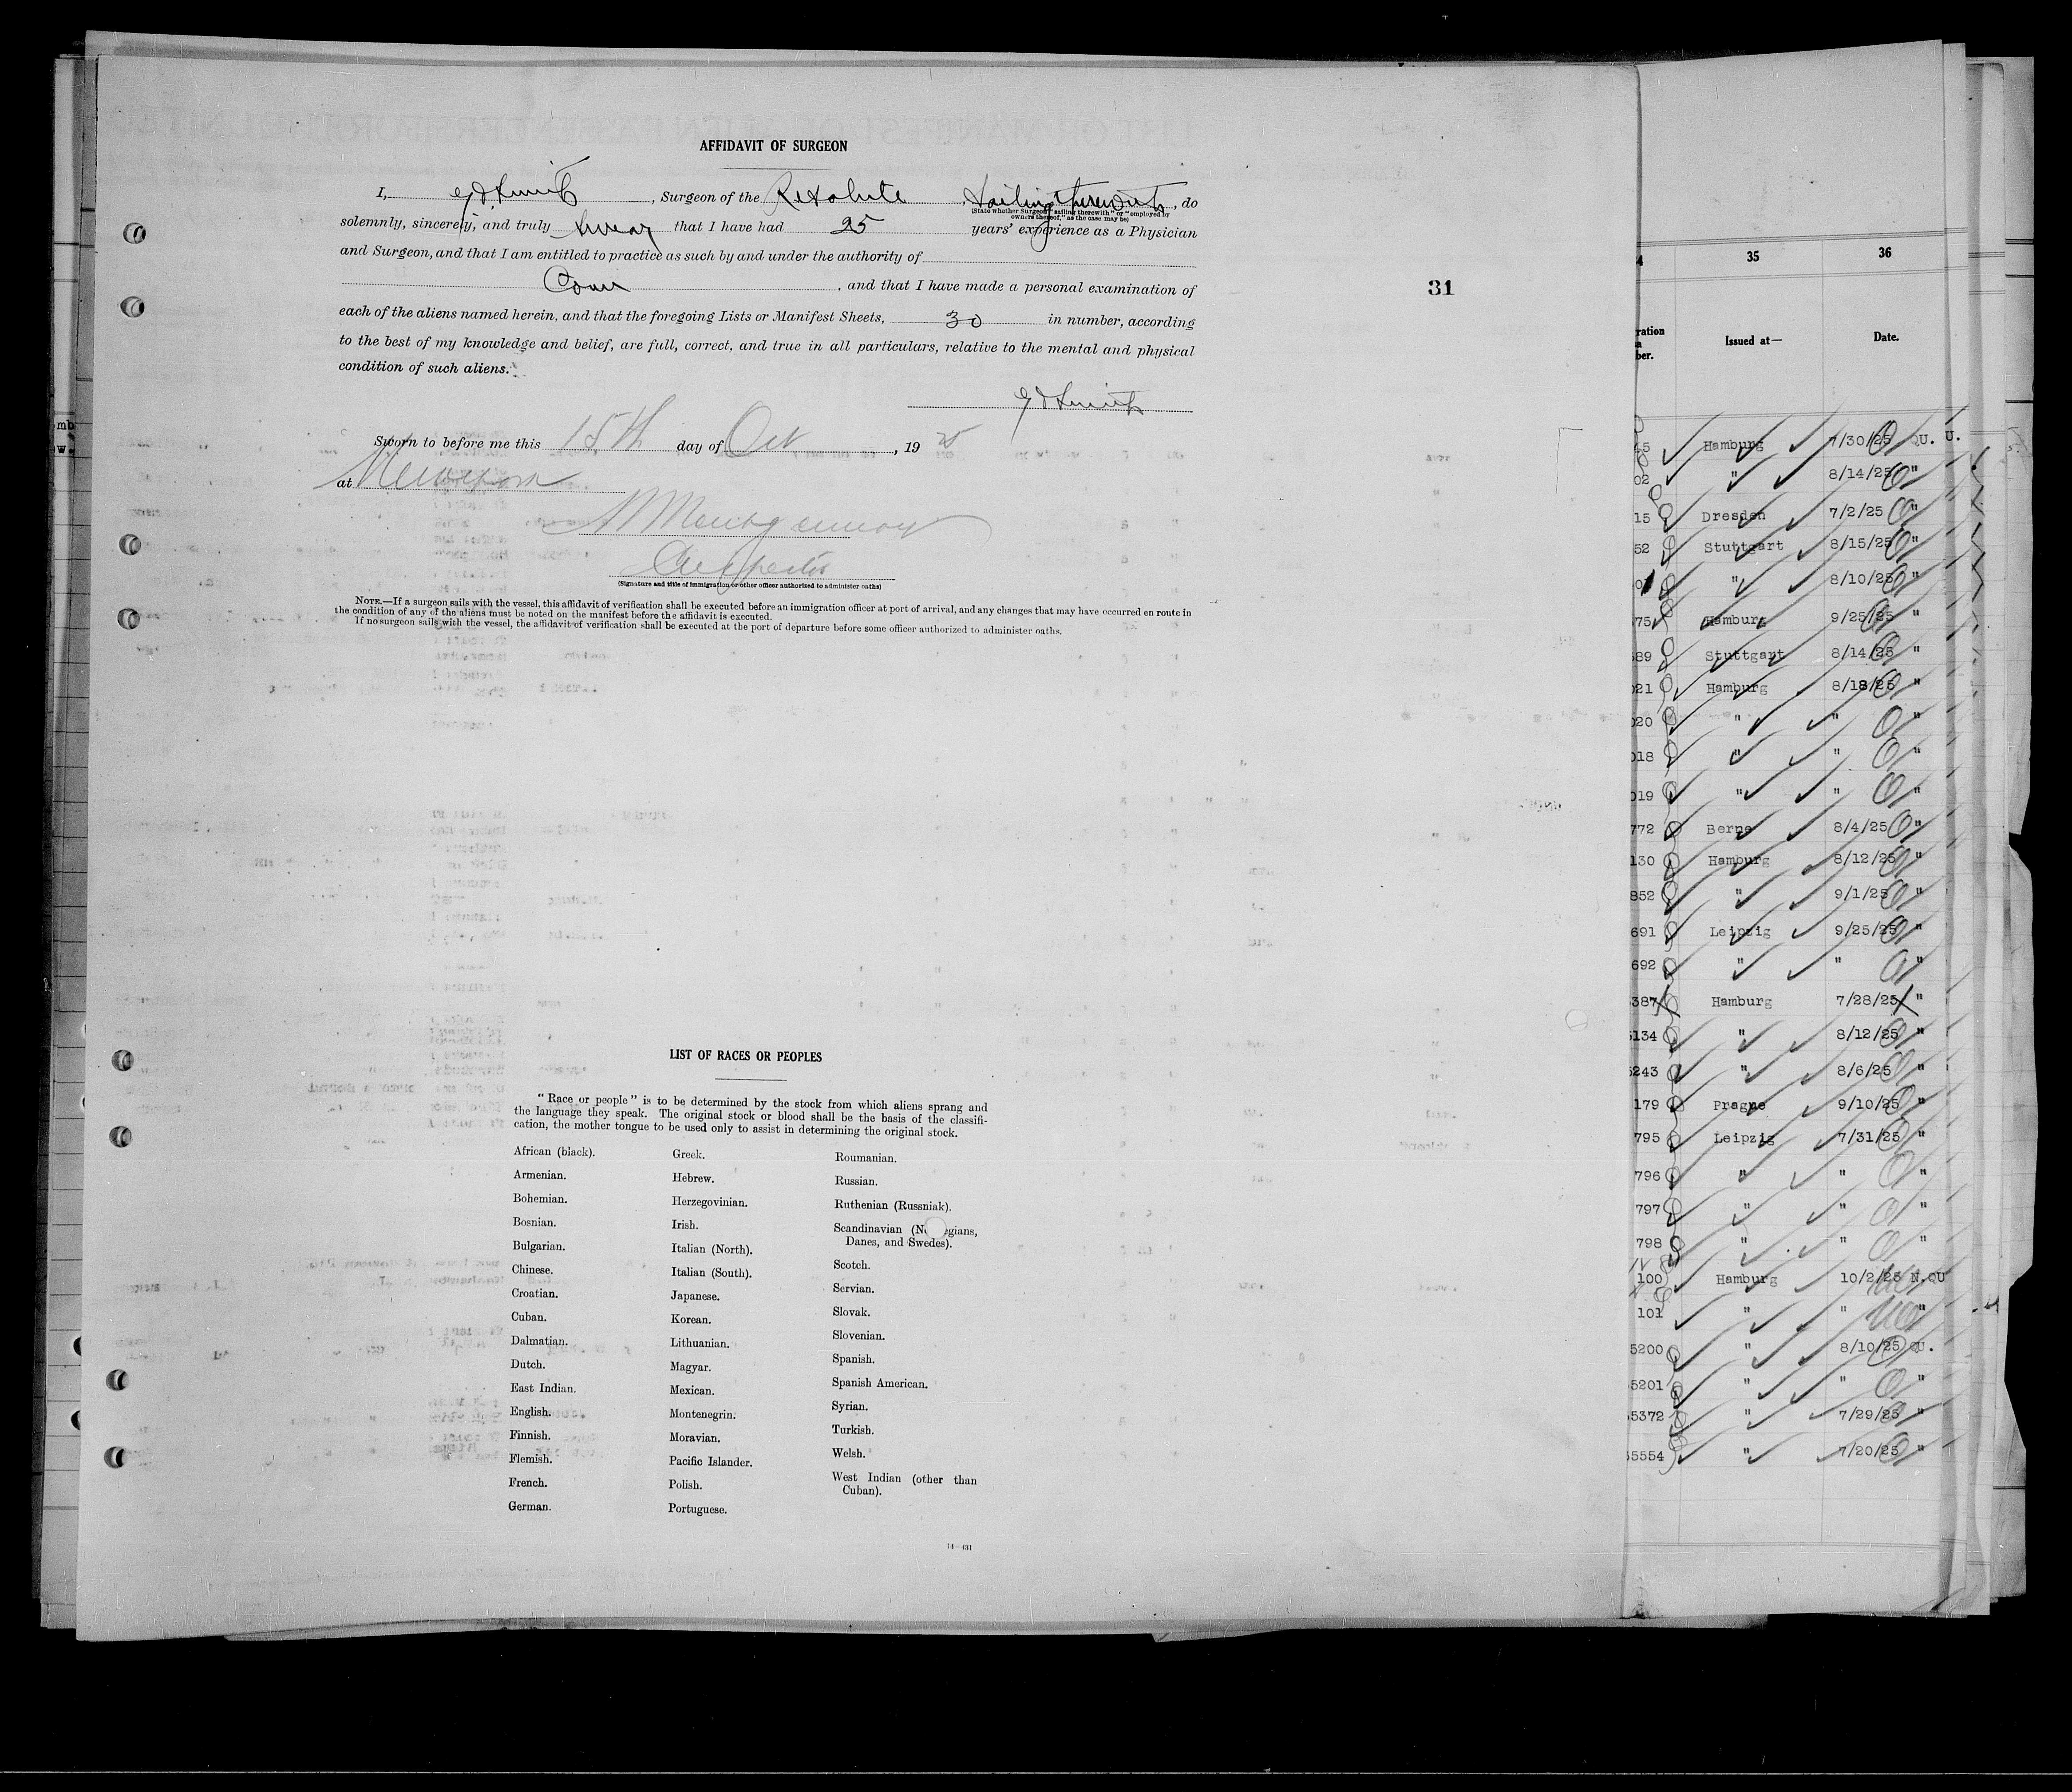 AFFIDAVIT OF SURGEON
I, , Surgeon of the Resolute , Sailing therewith , do
(State whether Surgeon "sailing therewith" or "employed by
owners thereof," as the case may be)
solemnly, sincerely, and truly swear that I have had 25 years' experience as a Physician
and Surgeon, and that I am entitled to practice as such by and under the authority of
Conn , and that I have made a personal examination of
each of the aliens named herein, and that the foregoing Lists or Manifest Sheets, 30 in number, according
to the best of my knowledge and belief, are full, correct, and true in all particulars, relative to the mental and physical
condition of such aliens.
31
Sworn to before me this 15th day of Oct , 19 25
at New York
Montgomery
Inspector
(Signature and title of immigration or other officer authorized to administer oaths)
NOTE.—If a surgeon sails with the vessel, this affidavit of verification shall be executed before an immigration officer at port of arrival, and any changes that may have occurred en route in
the condition of any of the aliens must be noted on the manifest before the affidavit is executed.
If no surgeon sails with the vessel, the affidavit of verification shall be executed at the port of departure before some officer authorized to administer oaths.
LIST OF RACES OR PEOPLES
"Race or people" is to be determined by the stock from which aliens sprang and
the language they speak. The original stock or blood shall be the basis of the classifi-
cation, the mother tongue to be used only to assist in determining the original stock.
African (black).
Armenian.
Bohemian.
Bosnian.
Bulgarian.
Chinese.
Croatian.
Cuban.
Dalmatian.
Dutch.
East Indian.
English.
Finnish.
Flemish.
French.
German.
Greek.
Hebrew.
Herzegovinian.
Irish.
Italian (North).
Italian (South).
Japanese.
Korean.
Lithuanian.
Magyar.
Mexican.
Montenegrin.
Moravian.
Pacific Islander.
Polish.
Portuguese.
Roumanian.
Russian.
Ruthenian (Russniak).
Scandinavian (Norwegians,
Danes, and Swedes).
Scotch.
Servian.
Slovak.
Slovenian.
Spanish.
Spanish American.
Syrian.
Turkish.
Welsh.
West Indian (other than
Cuban).
14—431
4 35 36
ration
ber. Issued at— Date.
Hamburg 7/30/25 QU. U.
02 " 8/14/25 "
15 Dresden 7/2/25 "
52 Stuttgart 8/15/25 "
" 8/10/25 "
75 Hamburg 9/25/25 "
89 Stuttgart 8/14/25 "
021 Hamburg 8/18/25 "
020 " " "
018 " " "
019 " " "
772 Berne 8/4/25 "
130 Hamburg 8/12/25 "
852 " 9/1/25 "
691 Leipzig 9/25/25 "
692 " " "
387 Hamburg 7/28/25 "
134 " 8/12/25 "
243 " 8/6/25 "
179 Prague 9/10/25 "
795 Leipzig 7/31/25 "
796 " " "
797 " " "
798 " " "
100 Hamburg 10/2/25 N.QU
101 " " "
5200 " 8/10/25 QU.
5201 " " "
5372 " 7/29/25 "
5554 " 7/20/25 "